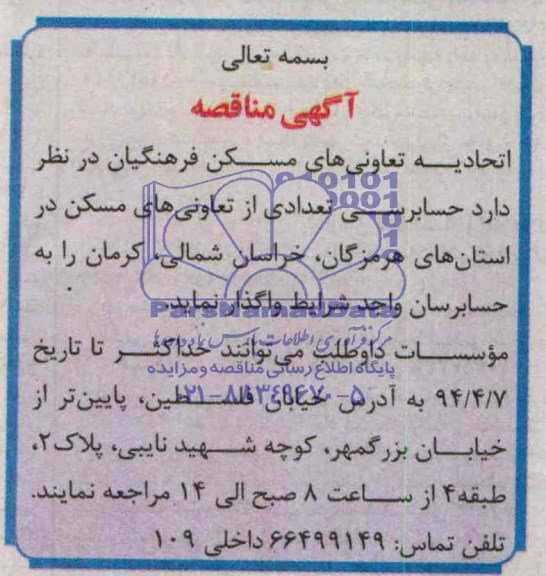 بسمه تعالی
آگهی مناقصه
اتحادیه تعاونی‌های مسکن فرهنگیان در نظر
دارد حسابرسی تعدادی از تعاونی‌های مسکن در
استان‌های هرمزگان، خراسان شمالی، کرمان را به
حسابرسان واجد شرایط واگذار نماید.
ParsNamadData
مؤسسات داوطلب می‌توانند حداکثر تا تاریخ
پایگاه اطلاع رسانی مناقصه و مزایده
۹۴/۴/۷ به آدرس خیابان فلسطین، پایین‌تر از
۰۲۱-۸۸۳۴۹۶۷۰-۵
خیابان بزرگمهر، کوچه شهید نایبی، پلاک ۲،
طبقه ۴ از ساعت ۸ صبح الی ۱۴ مراجعه نمایند.
تلفن تماس: ۶۶۴۹۹۱۴۹ داخلی ۱۰۹